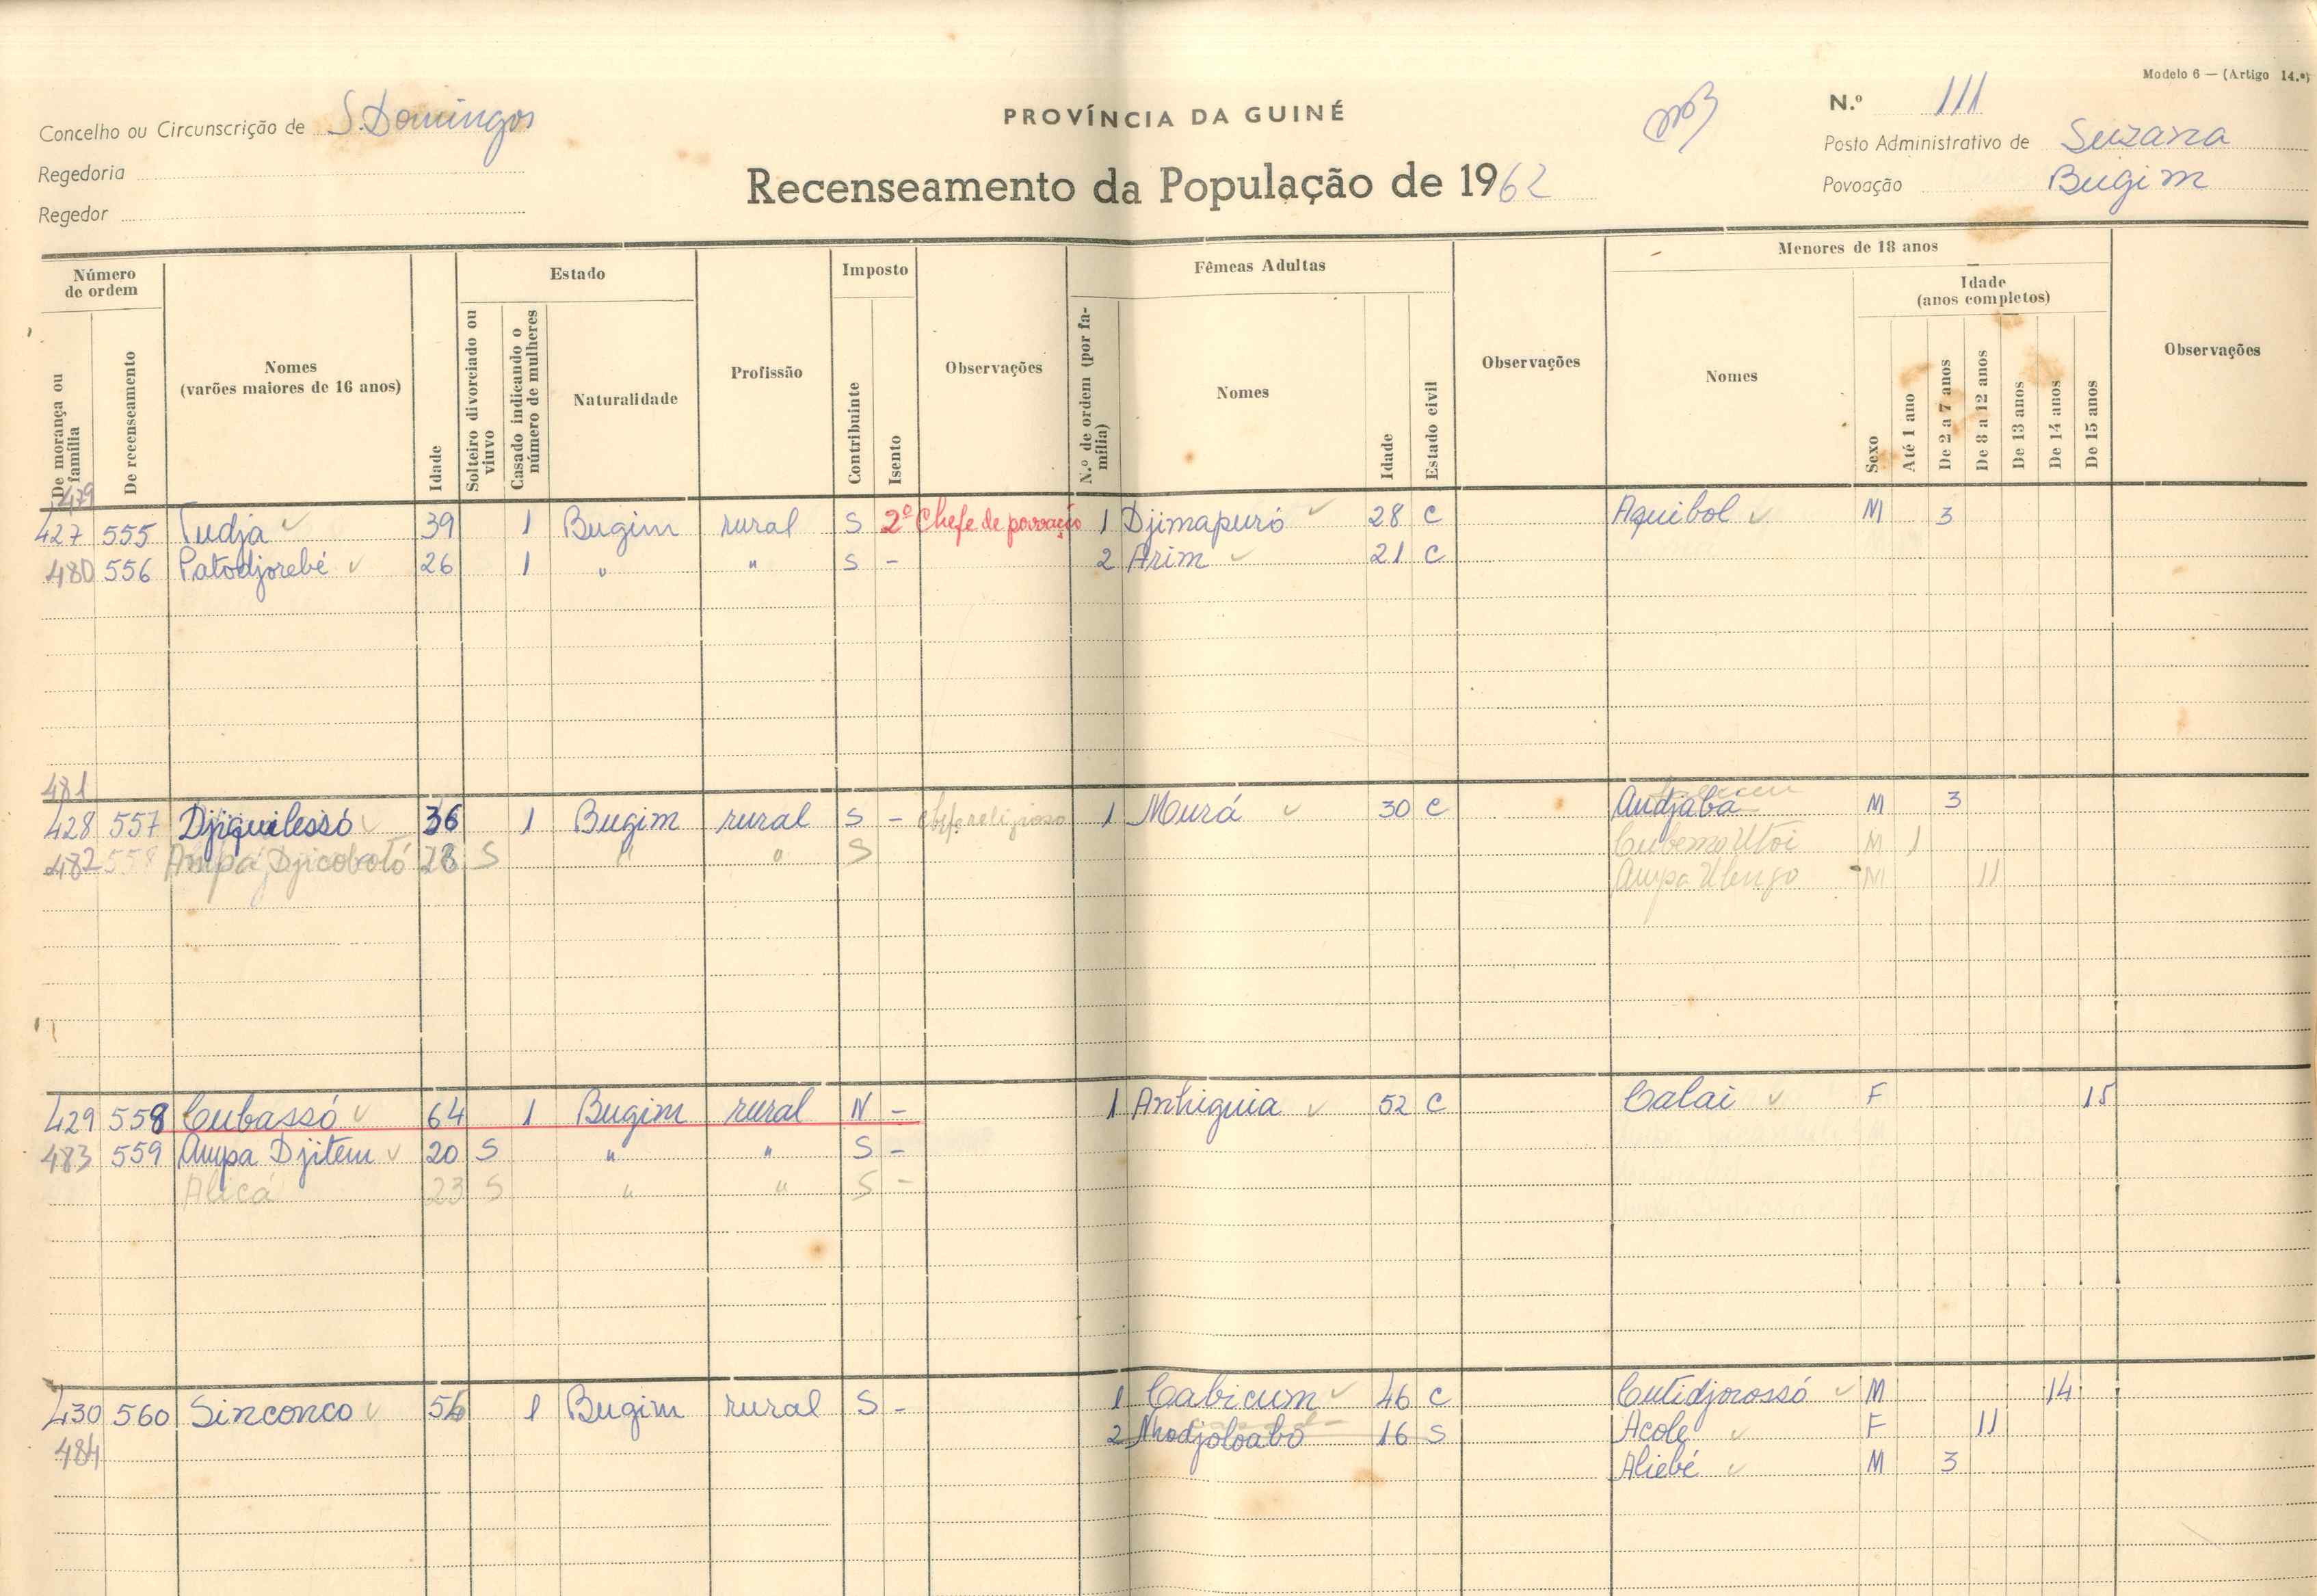 Modelo 6 — (Artigo 14.º)
Concelho ou Circunscrição de S. Domingos
PROVÍNCIA DA GUINÉ
N.º 111
Regedoria
Recenseamento da População de 1962
Posto Administrativo de Suzana
Regedor
Povoação Bugim
Número de ordem
Estado
Imposto
Fêmeas Adultas
Menores de 18 anos
Idade (anos completos)
De morança ou família
De recenseamento
Nomes (varões maiores de 16 anos)
Idade
Solteiro divorciado ou viuvo
Casado indicando o número de mulheres
Naturalidade
Profissão
Contribuinte
Isento
Observações
N.º de ordem (por família)
Nomes
Idade
Estado civil
Observações
Nomes
Sexo
Até 1 ano
De 2 a 7 anos
De 8 a 12 anos
De 13 anos
De 14 anos
De 15 anos
Observações
479
427 555 Tudja 39 1 Bugim rural S 2º Chefe de povoação 1 Djimapuró 28 C Aquibol M 3
480 556 Patodjorebé 26 1 " " S - 2 Arim 21 C
481
428 557 Djiquilessó 36 1 Bugim rural S - chefe religioso 1 Mourá 30 C Andjaba M 3
482 558 Ampa Djicobotó 28 S " " S M 1
Ampa Ulengo M 11
429 558 Cubassó 64 1 Bugim rural N - 1 Anhiguia 52 C Calai F 15
483 559 Ampa Djitem 20 S " " S -
Alicá 23 S " " S -
430 560 Sinconco 54 1 Bugim rural S - 1 Cabicum 46 C Cutidjorossó M 14
484 2 Nhodjoloabó 16 S Acole F 11
Aliebé M 3